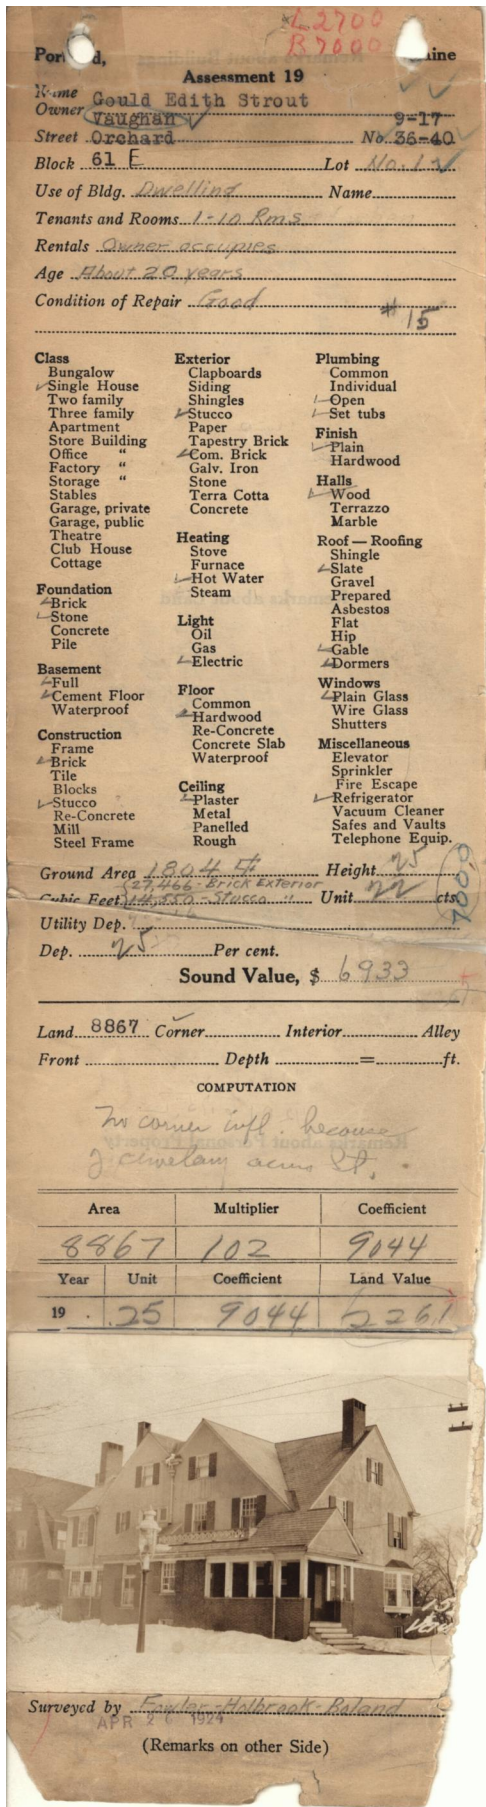 L2700
R7000
Por d, aine
Assessment 19
Name
Owner Gould Edith Strout
Vaughan 9-17
Street Orchard No. 36-40
Block 61 E Lot No. 12
Use of Bldg. Dwelling Name
Tenants and Rooms 1-10 Rms
Rentals Owner occupies
Age About 20 years
Condition of Repair Good
# 15
Class
Bungalow
Single House
Two family
Three family
Apartment
Store Building
Office "
Factory "
Storage "
Stables
Garage, private
Garage, public
Theatre
Club House
Cottage
Foundation
Brick
Stone
Concrete
Pile
Basement
Full
Cement Floor
Waterproof
Construction
Frame
Brick
Tile
Blocks
Stucco
Re-Concrete
Mill
Steel Frame
Exterior
Clapboards
Siding
Shingles
Stucco
Paper
Tapestry Brick
Com. Brick
Galv. Iron
Stone
Terra Cotta
Concrete
Heating
Stove
Furnace
Hot Water
Steam
Light
Oil
Gas
Electric
Floor
Common
Hardwood
Re-Concrete
Concrete Slab
Waterproof
Ceiling
Plaster
Metal
Panelled
Rough
Plumbing
Common
Individual
Open
Set tubs
Finish
Plain
Hardwood
Halls
Wood
Terrazzo
Marble
Roof — Roofing
Shingle
Slate
Gravel
Prepared
Asbestos
Flat
Hip
Gable
Dormers
Windows
Plain Glass
Wire Glass
Shutters
Miscellaneous
Elevator
Sprinkler
Fire Escape
Refrigerator
Vacuum Cleaner
Safes and Vaults
Telephone Equip.
Ground Area 1804 Height 25
27,466 - Brick Exterior
Cubic Feet 14,550 - Stucco " Unit 22 cts.
7000
Utility Dep.
Dep. 25 Per cent.
Sound Value, $ 6933
Land 8867 Corner Interior Alley
Front Depth = ft.
COMPUTATION
No corner infl. because
acros St.
Area Multiplier Coefficient
8867 102 9044
Year Unit Coefficient Land Value
19 .25 9044 2261
Surveyed by Fowler-Holbrook-Boland
APR 26 1924
(Remarks on other Side)